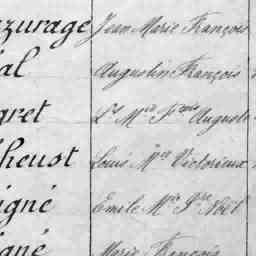 zurage Jean Marie François
al Augustin François
gret L.s M.ie F.ois Auguste
heust Louis M.ie Victorieux
igné Emile M.ie P.re Noël
igné Marie François